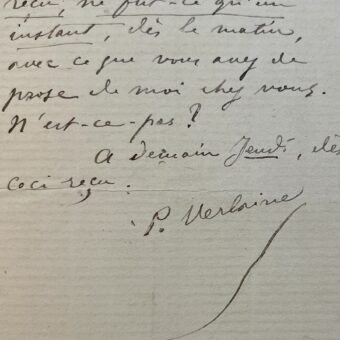 reçu, ne fut-ce qu'un
instant, dès le matin,
avec ce que vous avez de
prose de moi chez vous.
N'est-ce-pas?
A demain Jeudi, dès
ceci reçu.
P. Verlaine